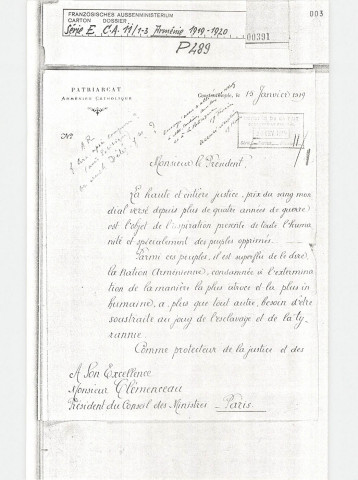 FRANZÖSISCHES AUSSENMINISTERIUM
CARTON DOSSIER
Série E, C.A. 11/1-3, Arménie 1919-1920
00391
003
P 489
PATRIARCAT
ARMÉNIEN CATHOLIQUE
Constantinople, le 15 Janvier 1919
No
A.R.
Monsieur le Président,
La haute et entière justice, prix du sang mon
dial versé depuis plus de quatre années de guerre
est l'objet de l'aspiration première de toute l'huma
nité et spécialement des peuples opprimés.
Parmi ces peuples, il est superflu de le dire,
la Nation Arménienne, condamnée à l'extermina
tion de la manière la plus atroce et la plus in
humaine, a, plus que tout autre, besoin d'être
soustraite au joug de l'esclavage et de la ty
rannie.
Comme protecteur de la justice et des
A Son Excellence
Monsieur Clémenceau
Président du Conseil des Ministres - Paris